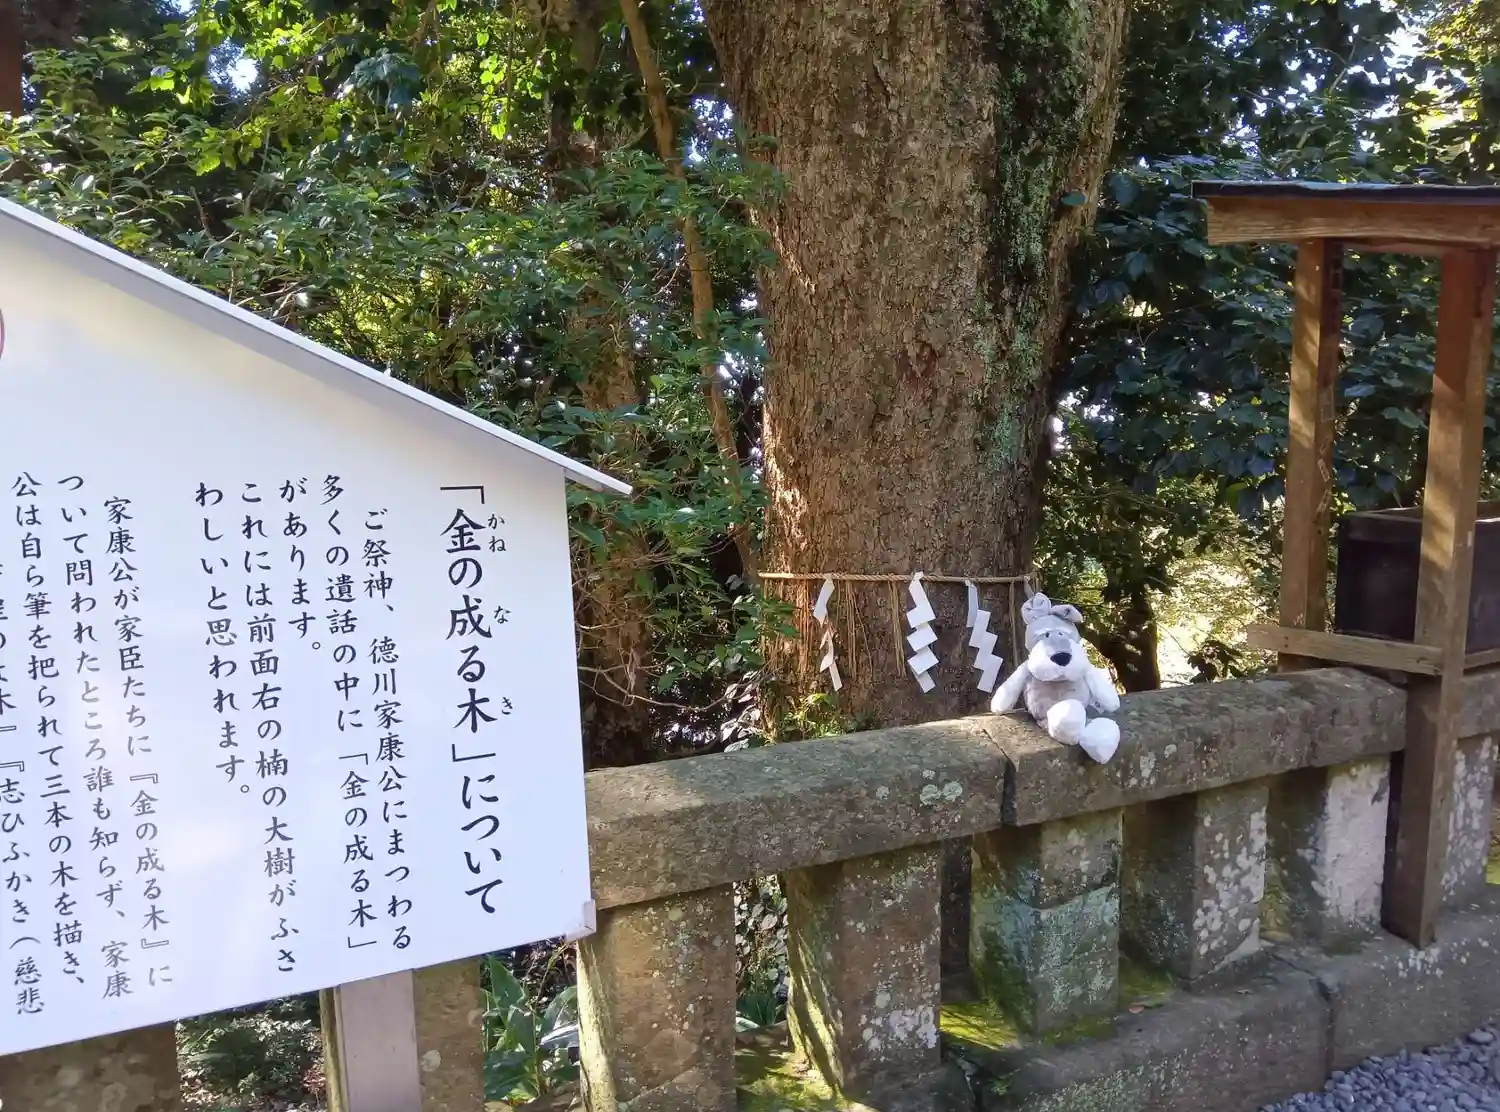 「金の成る木」について
かね な き
ご祭神、徳川家康公にまつわる
多くの遺話の中に「金の成る木」
があります。
これには前面右の楠の大樹がふさ
わしいと思われます。
家康公が家臣たちに『金の成る木』に
ついて問われたところ誰も知らず、家康
公は自ら筆を把られて三本の木を描き、
木』『志ひふかき（慈悲